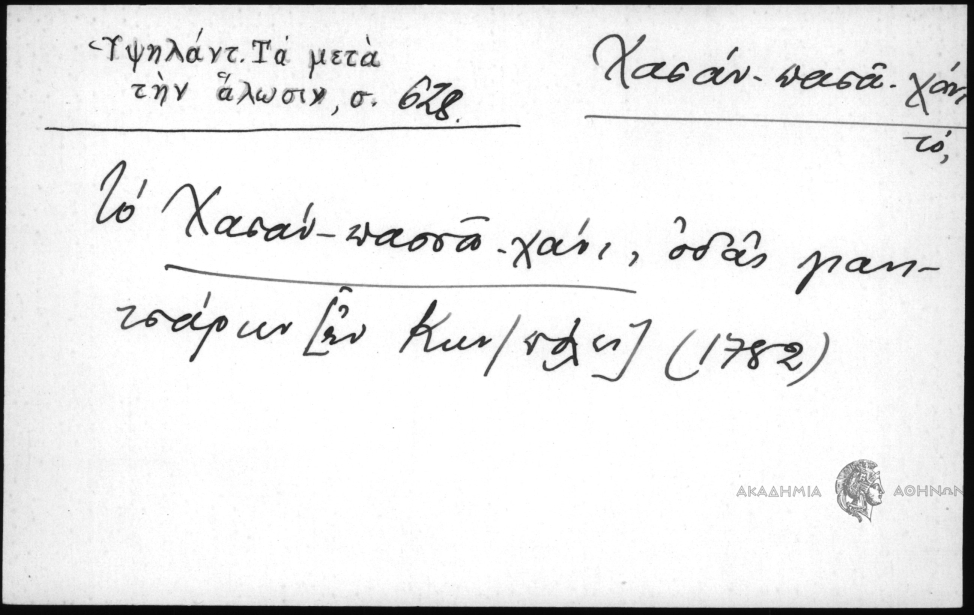 Ὑψηλάντ. Τά μετὰ
τὴν ἅλωσιν, σ. 628.
Χασάν-πασᾶ-χάνι
τό,
Τό Χασάν-πασσᾶ-χάνι, ὁδᾶς γιανι-
τσάρων [ἐν Κων/πόλει] (1782)
ΑΚΑΔΗΜΙΑ ΑΘΗΝΩΝ